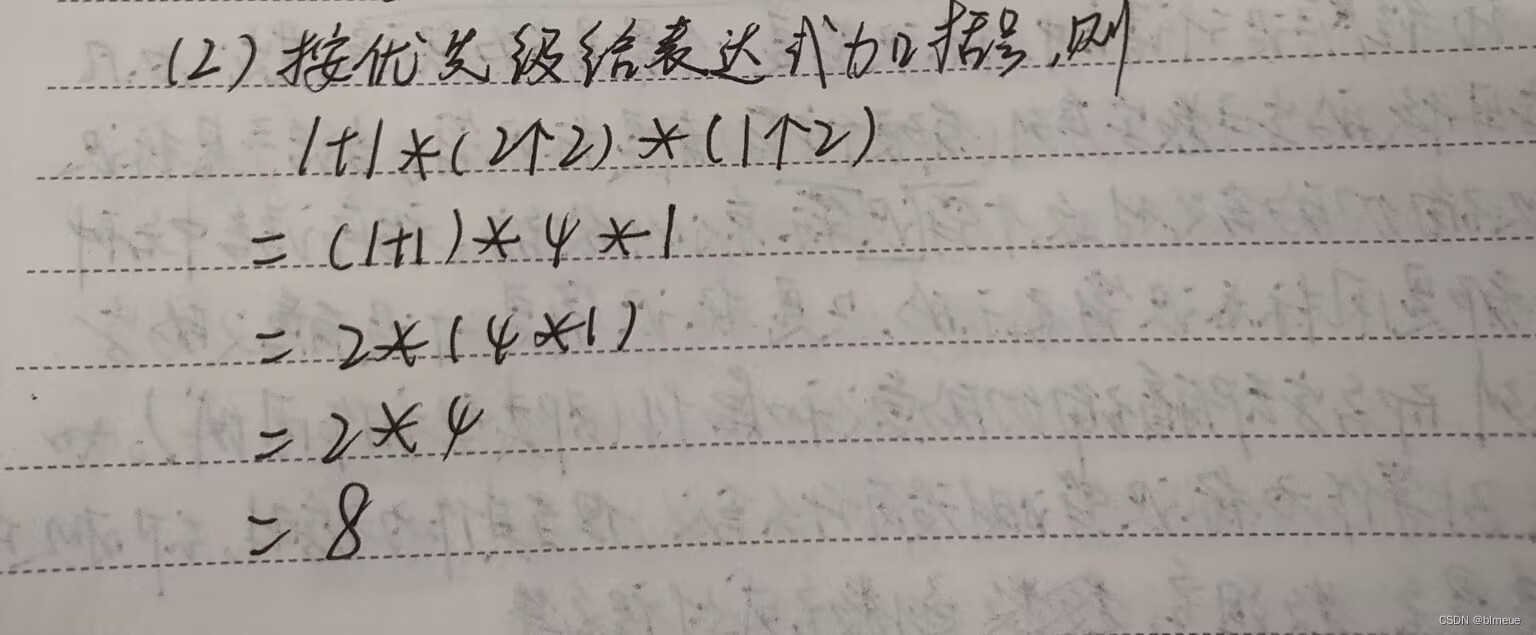 (2) 按优先级给表达式加括号,则
1+1*(2↑2)*(1↑2)
=(1+1)*4*1
=2*(4*1)
=2*4
=8
CSDN @blmeue